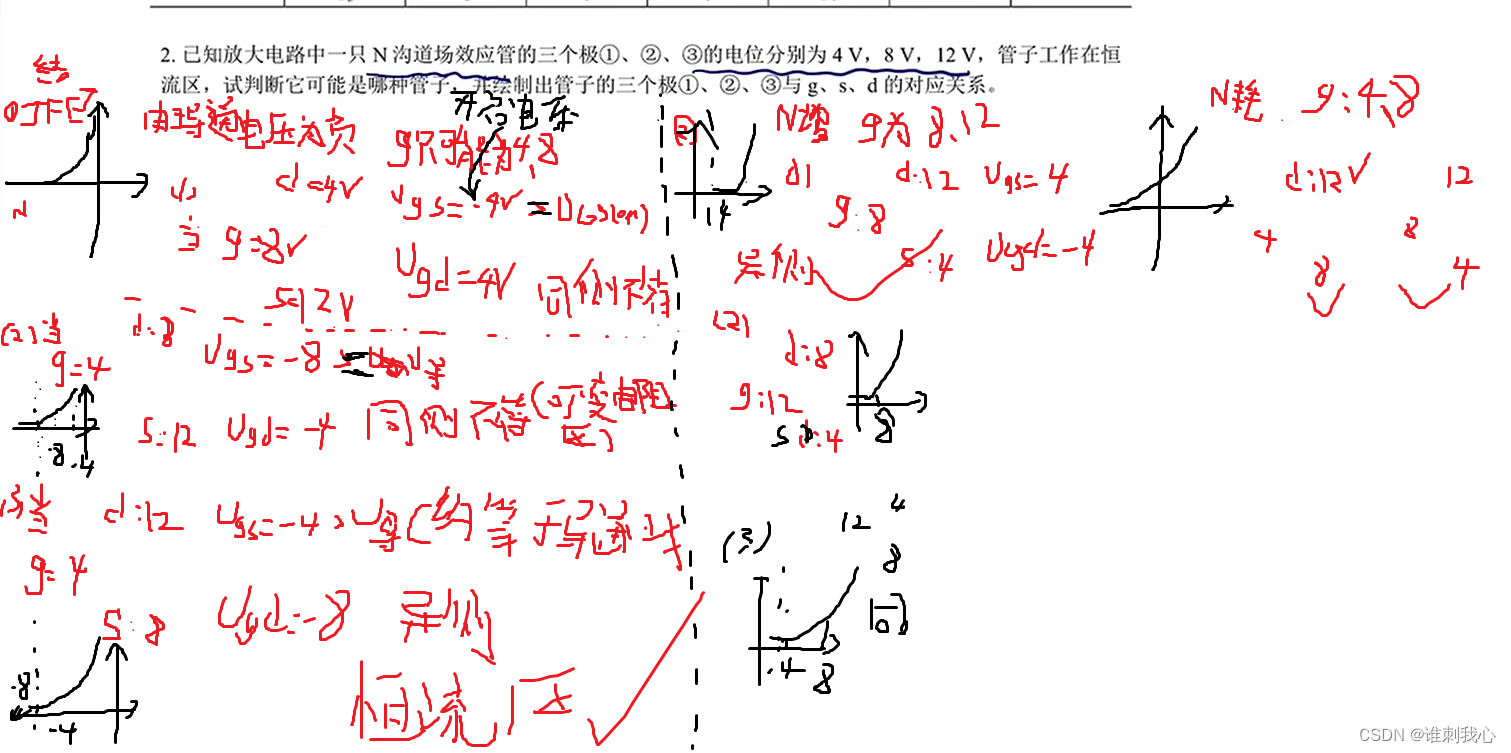 2. 已知放大电路中一只 N 沟道场效应管的三个极①、②、③的电位分别为 4 V，8 V，12 V，管子工作在恒
流区，试判断它可能是哪种管子，并绘制出管子的三个极①、②、③与 g、s、d 的对应关系。
结
JFET
N
由导通电压为负
开启电压
g只可能为4,8
d=4V
Ugs=-4V = UGS(on)
当 g=8V
Ugd=4V 同侧不符
S=12V
(2)当
g=4
d:8
Ugs=-8
S:12 Ugd=-4 同侧不符(可变电阻
区)
-8 -4
(3)当
g=4
d:12 Ugs=-4 > U导(约等于导通时
S:8
Ugd=-8 异侧
恒流区
-8
-4
N增 g为8、12
4
(1 d:12 Ugs=4
g:8
S:4 Ugd=-4
异侧
(2)
d:8
g:12
S d:4
8
(3)
12 4
8
同
4
8
N耗 g:4,8
d:12V 12
4 8
8 4
CSDN @谁刺我心